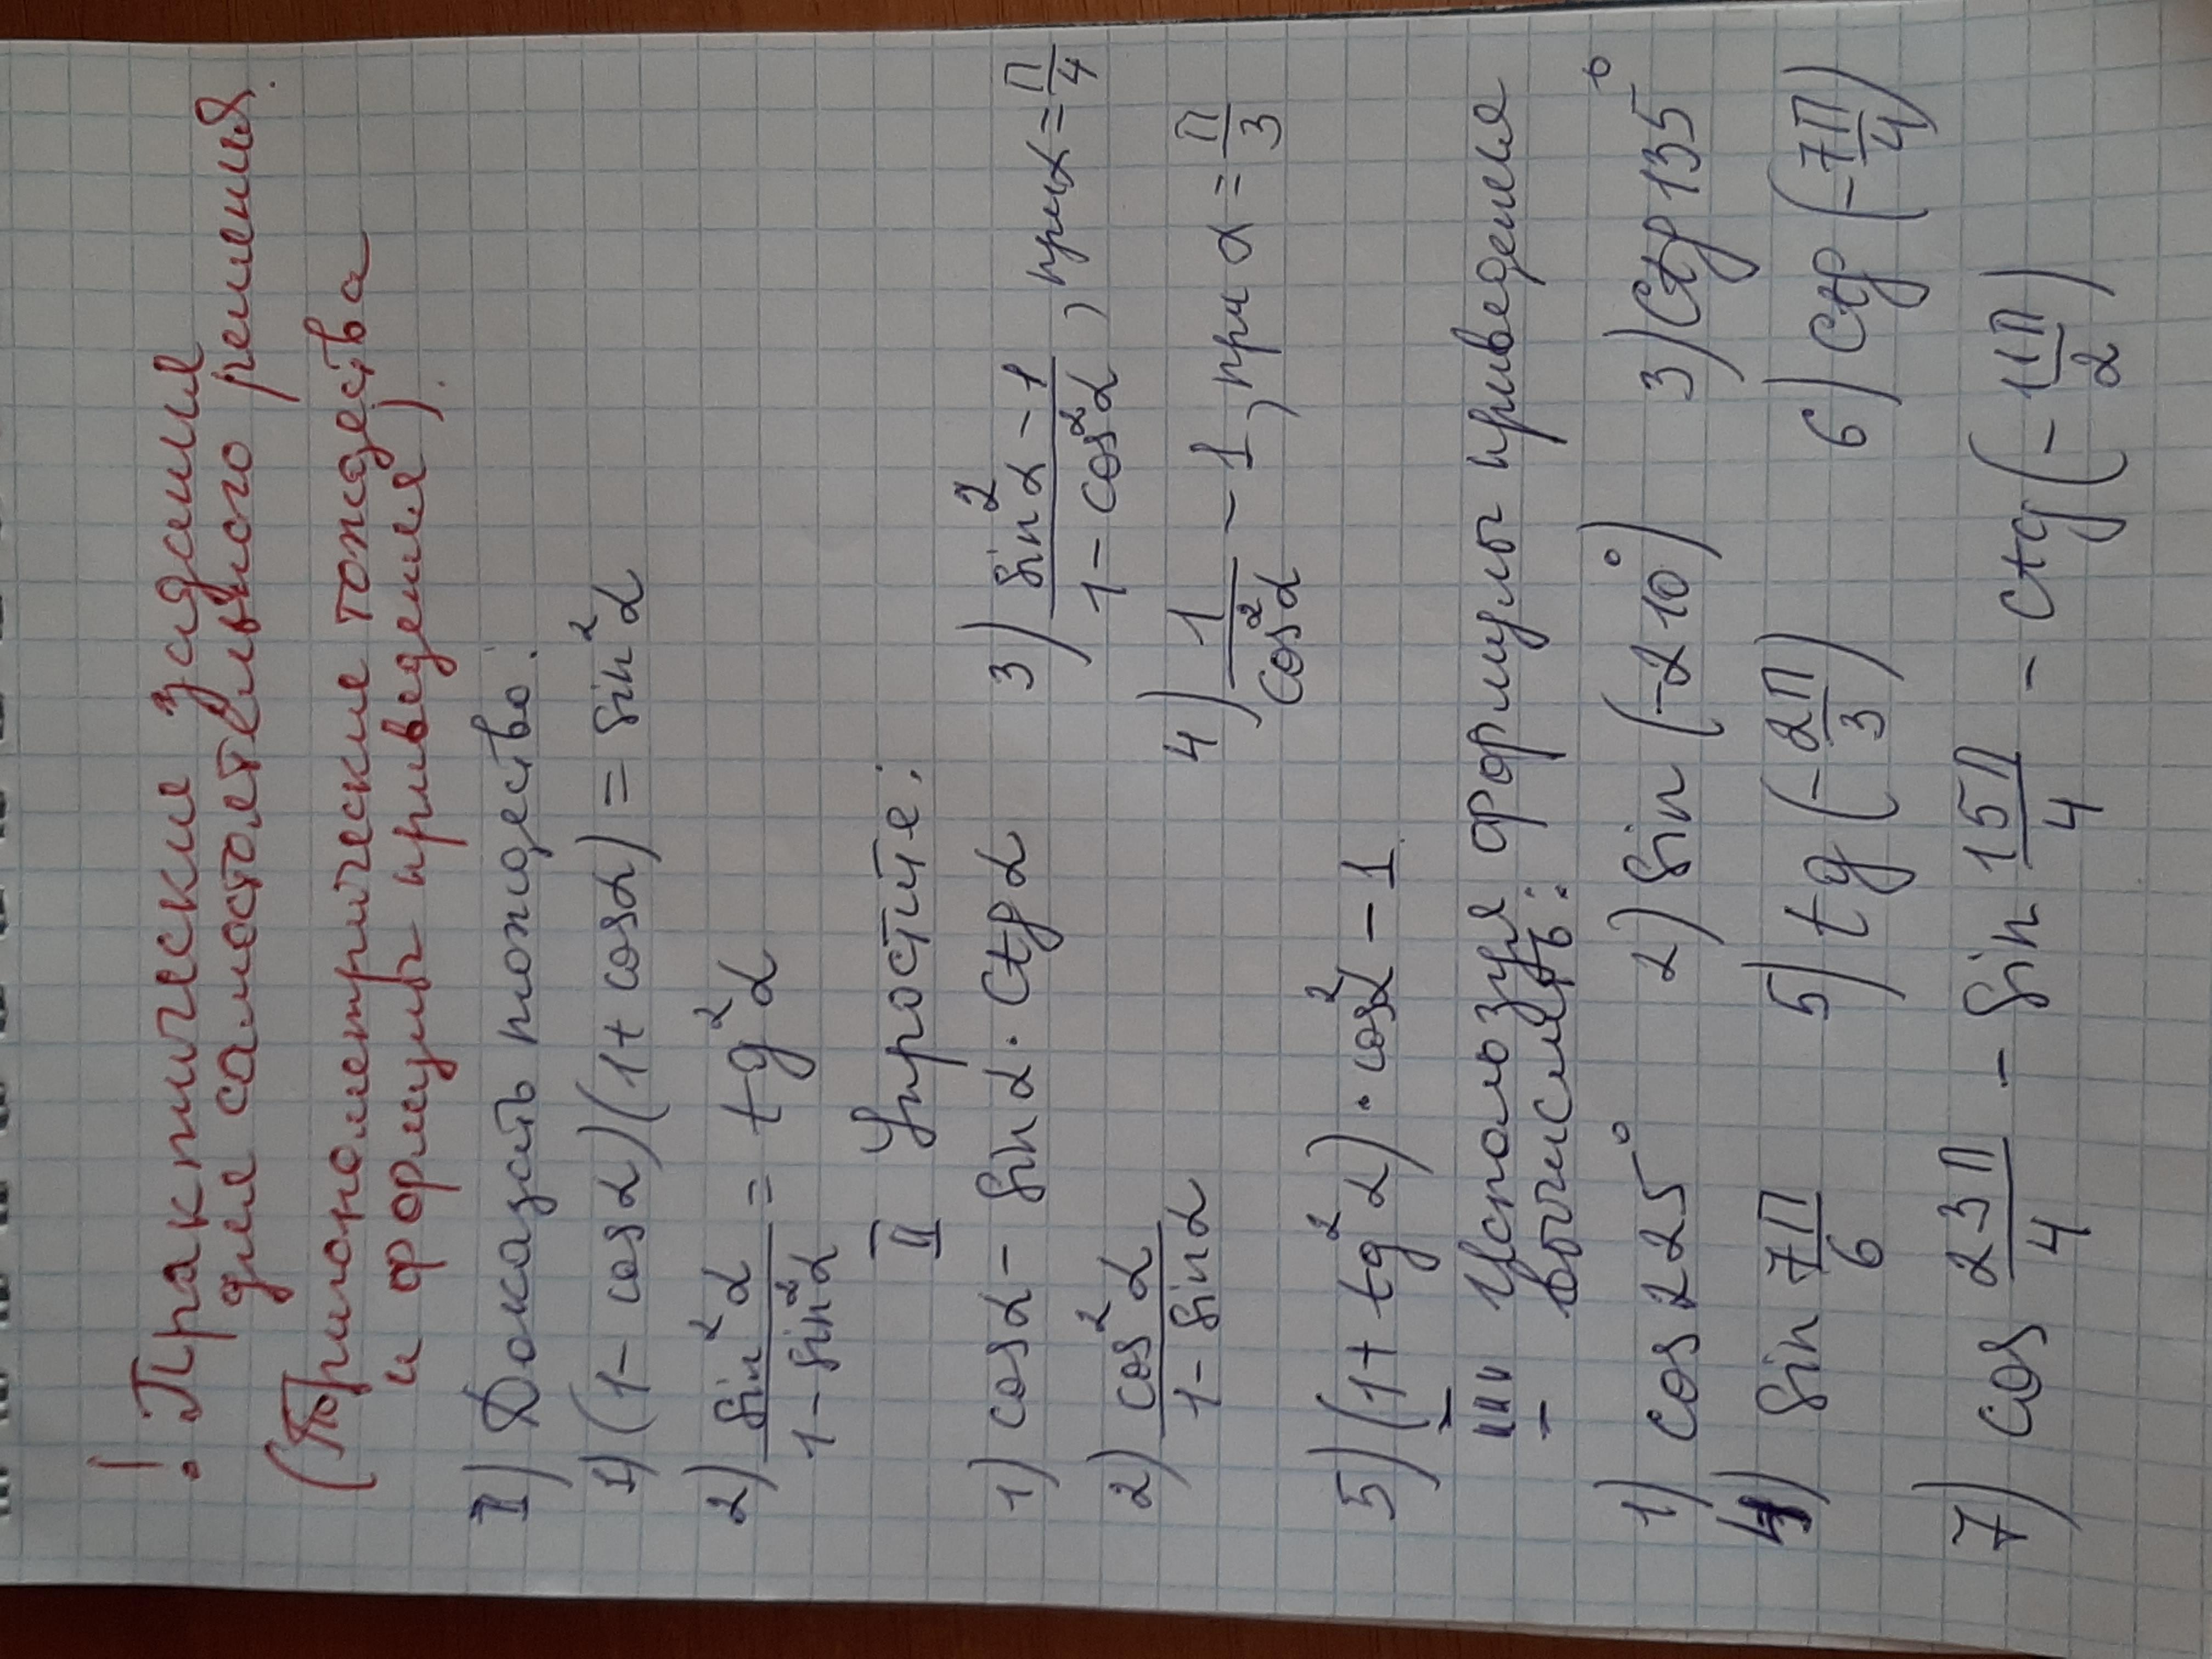 ! Практические задания
для самостоятельного решения.
(Тригонометрические тождества
и формулы приведения).
I) Доказать тождество:
1) (1 - cos α)(1 + cos α) = sin² α
2) sin² α / 1 - sin² α = tg² α
II Упростите:
1) cos α - sin α · ctg α
2) cos² α / 1 - sin α
3) sin² α - 1 / 1 - cos² α, при α = П/4
4) 1 / cos² α - 1, при α = П/3
5) (1 + tg² α) · cos² α - 1
III Используя формулы приведения
вычислить:
1) cos 225° 2) sin (-210°) 3) ctg 135°
4) sin 7П/6 5) tg (-2П/3) 6) ctg (-7П/4)
7) cos 23П/4 - sin 15П/4 - ctg (-11П/2)